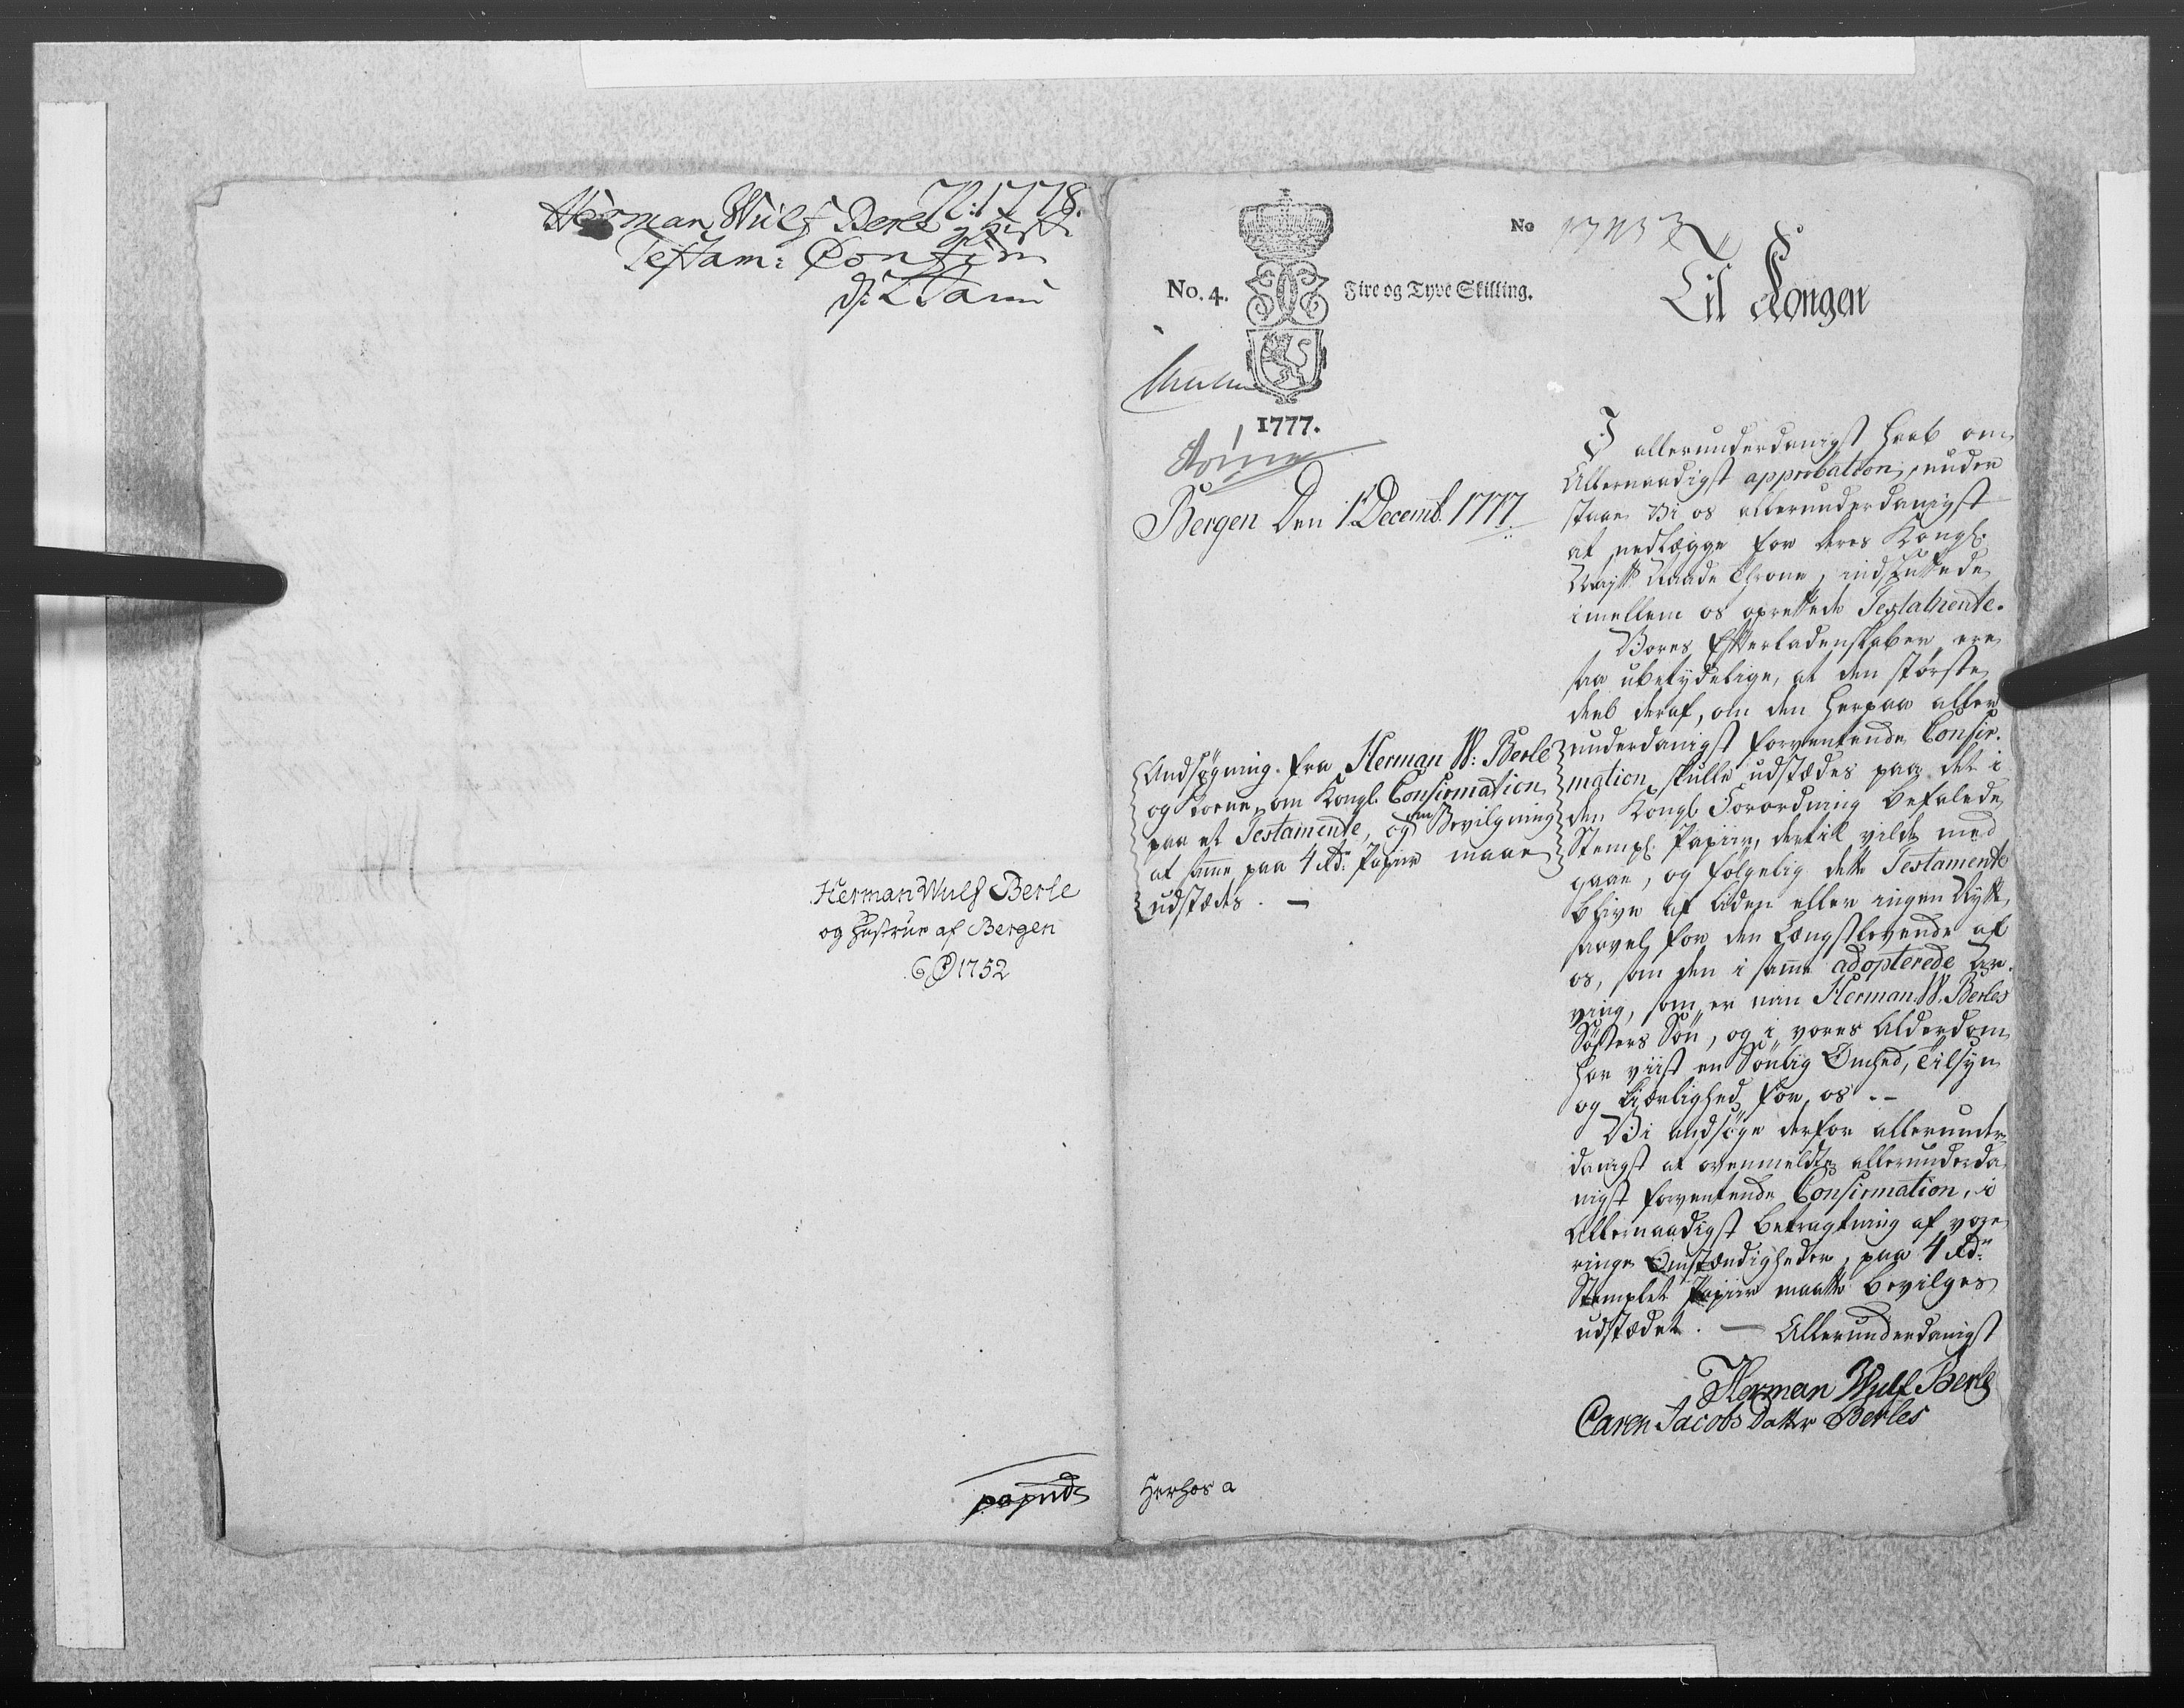 N: 1778.
Herman Wulf Berle og Hust
Testam: Confirm
Herman Wulf Berle
og Hustrue af Bergen
6 P 1752
No. 4.
Fire og Tyve Skilling.
No
1777.
Bergen Den 1 Decemb. 1777
Andsøgning fra Herman W: Berle
og Kone, om Kongl. Confirmation
paa et Testamente, og om Bevilgning
at samme paa 4 Rdr. Papiir maae
udstædes. —
Herhos a
Til Kongen
I allerunderdanigst Haab om
Allernaadigst approbation, under
staae Vi os allerunderdanigst
at nedlægge for deres Kongl.
Mayts Naade Throne, indsluttede
imellem os oprettede Testamente.
Vores Efterladenskaber ere
saa ubetydelige, at den største
deel deraf, om den herpaa aller
underdanigst forventende Confir-
mation skulle udstædes paa det i
den Kongl. Forordning befalede
Stempl. Papiir, dertil vilde med
gaae, og følgelig dette Testamente
blive af liden eller ingen Nytte
saavel for den Længstlevende af
os, som den i samme adopterede Ar-
ving, som er min Herman W. Berles
Søsters Søn, og i vores Alderdom
har viist en Sønlig Ømhed, Tilsyn
og Kierlighed for os. —
Vi andsøge derfor allerunder
danigst at ovenmeldte allerunderda
nigst forventende Confirmation, i
Allernaadigst betragtning af vore
ringe Omstændigheder, paa 4 Rdr
Stemplet Papiir maatte bevilges
udstædet. — Allerunderdanigst
Herman Wulf Berle
Caren Jacobs Datter Berles